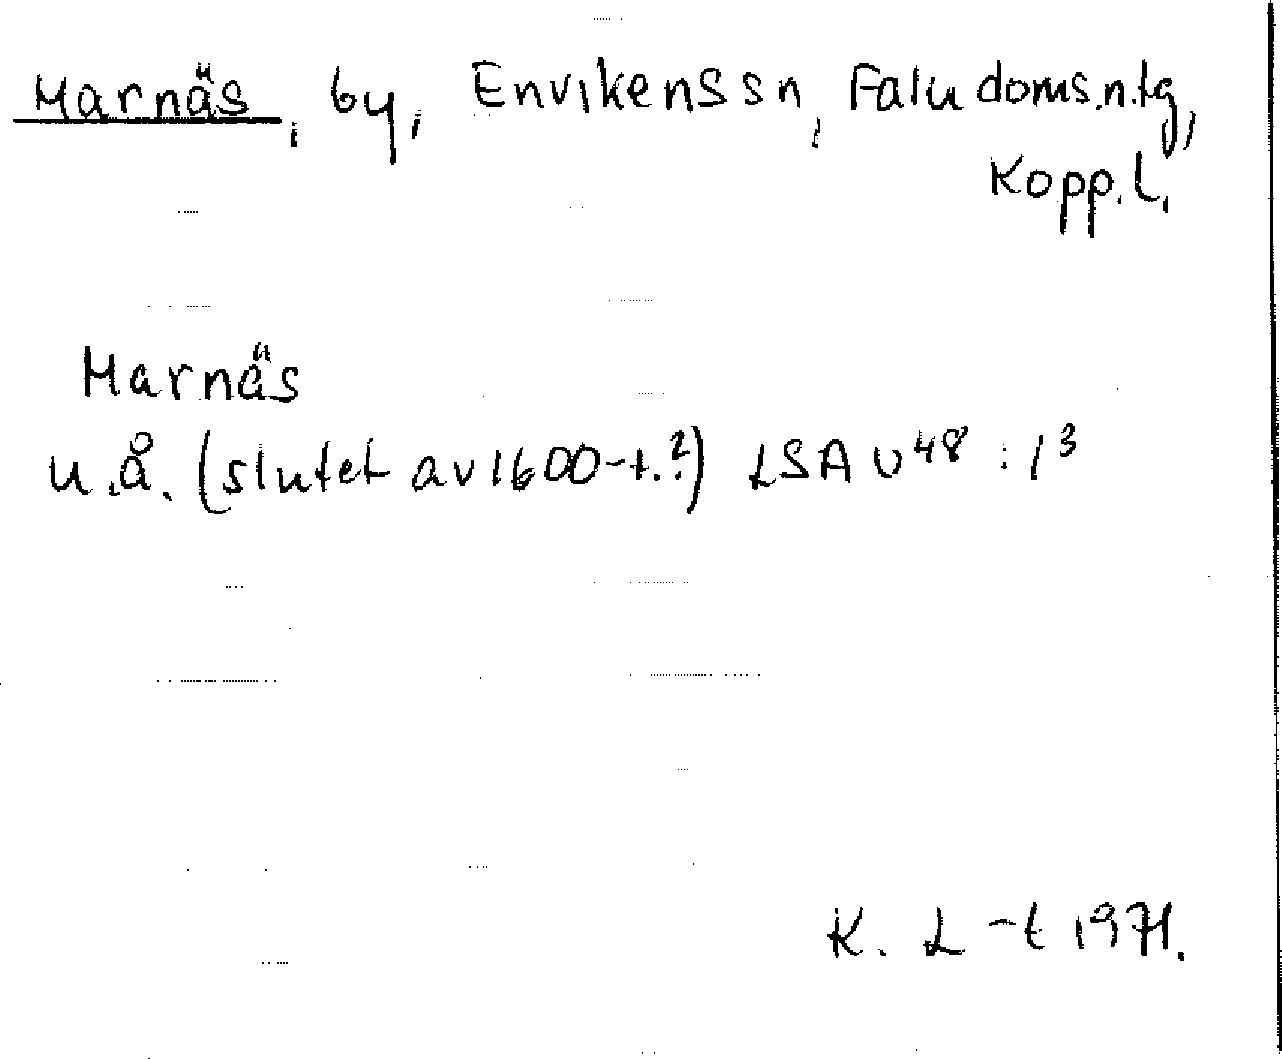 Marnäs, by, Envikens sn, Falu doms.n.tg,
Kopp.l.
Marnäs
u.å. (slutet av 1600-t.?) LSA U48:1³
K. L-t 1971.